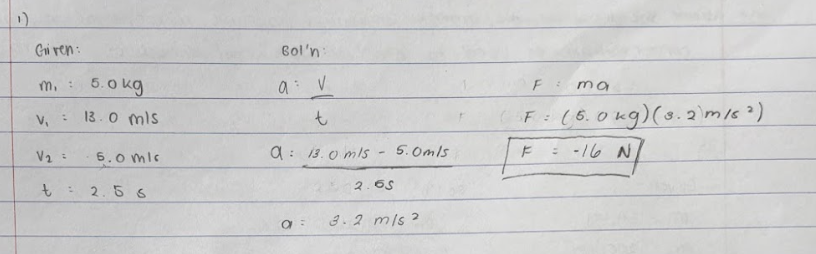 1)
Given:
m₁ : 5.0 kg
v₁ : 13.0 m/s
v₂ : 5.0 m/s
t : 2.5 s
Sol'n:
a : v
t
a : 13.0 m/s - 5.0 m/s
2.5s
a : 3.2 m/s²
F : ma
F : (5.0 kg)(3.2) m/s²)
F : -16 N